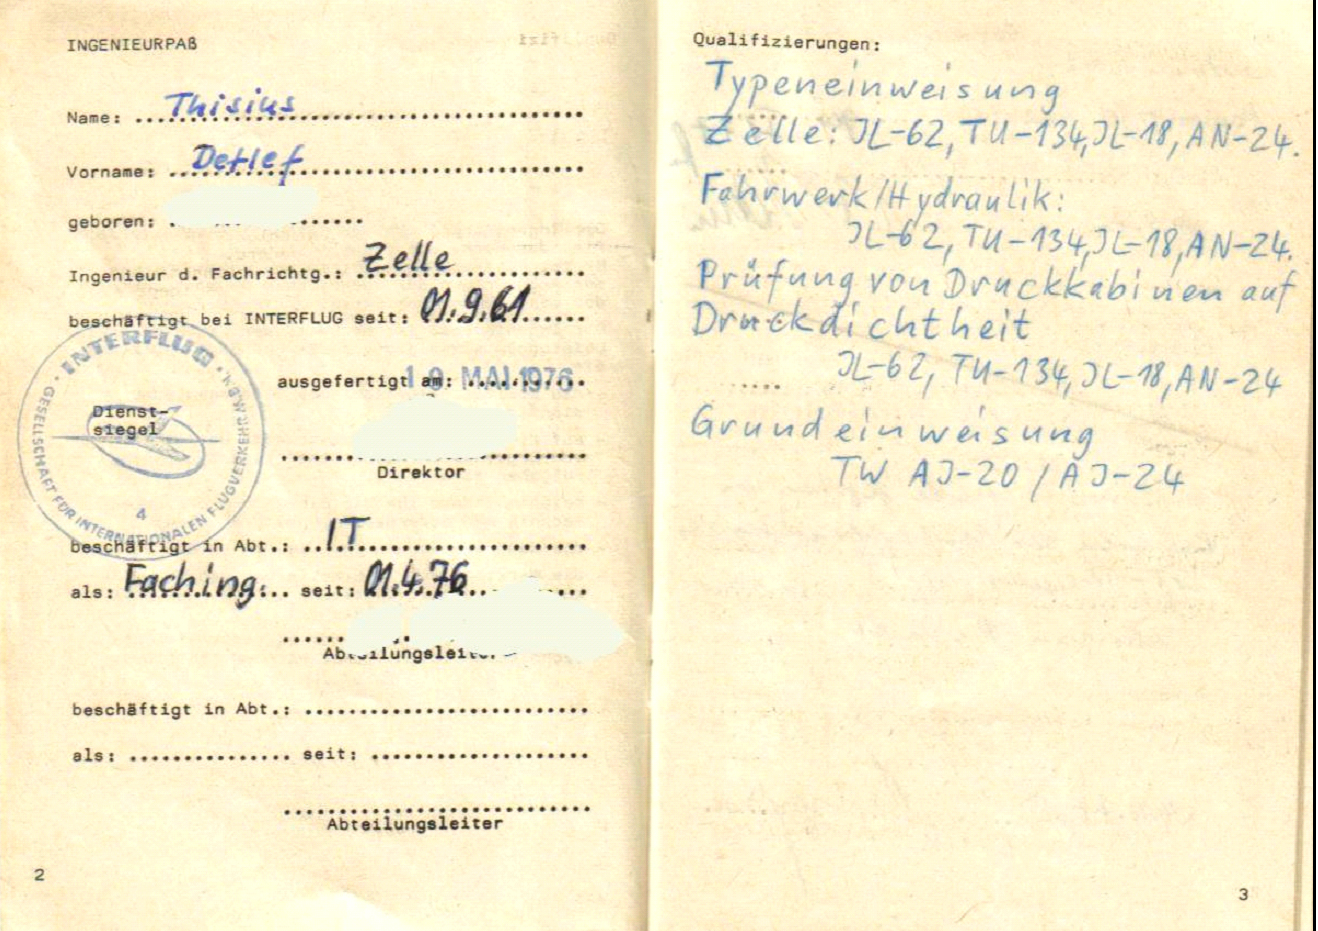 INGENIEURPAß
Name: Thisius
Vorname: Detlef
geboren:
Ingenieur d. Fachrichtg.: Zelle
beschäftigt bei INTERFLUG seit: 01.9.61
ausgefertigt am: 19. MAI 1976
Dienst-
siegel
INTERFLUG
GESELLSCHAFT FÜR INTERNATIONALEN FLUGVERKEHR M.B.H.
4
Direktor
beschäftigt in Abt.: IT
als: Faching. seit: 01.4.76
Abteilungsleiter
beschäftigt in Abt.:
als: seit:
Abteilungsleiter
2
Qualifizierungen:
Typeneinweisung
Zelle: JL-62, TU-134, JL-18, AN-24.
Fahrwerk/Hydraulik:
JL-62, TU-134, JL-18, AN-24.
Prüfung von Druckkabinen auf
Druckdichtheit
JL-62, TU-134, JL-18, AN-24
Grundeinweisung
TW AJ-20 / AJ-24
3